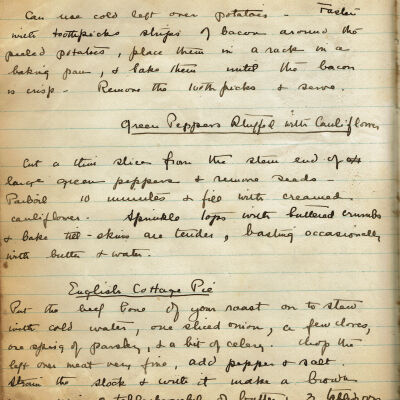 Can use cold left over potatoes - Fasten
with toothpicks strips of bacon around the
peeled potatoes, place them in a rack in a
baking pan, & bake them until the bacon
is crisp - Remove the toothpicks & serve.
Green Peppers Stuffed with Cauliflower
Cut a thin slice from the stem end of
large green peppers & remove seeds -
Parboil 10 minutes & fill with creamed
cauliflower. Sprinkle tops with buttered crumbs
& bake till skins are tender, basting occasionally
with butter & water.
English Cottage Pie
Put the beef bone of your roast on to stew
with cold water, one sliced onion, a few cloves,
one sprig of parsley, & a bit of celery. Chop the
left over meat very fine, add pepper & salt
Strain the stock & with it make a brown
tablespoonful of butter, 2